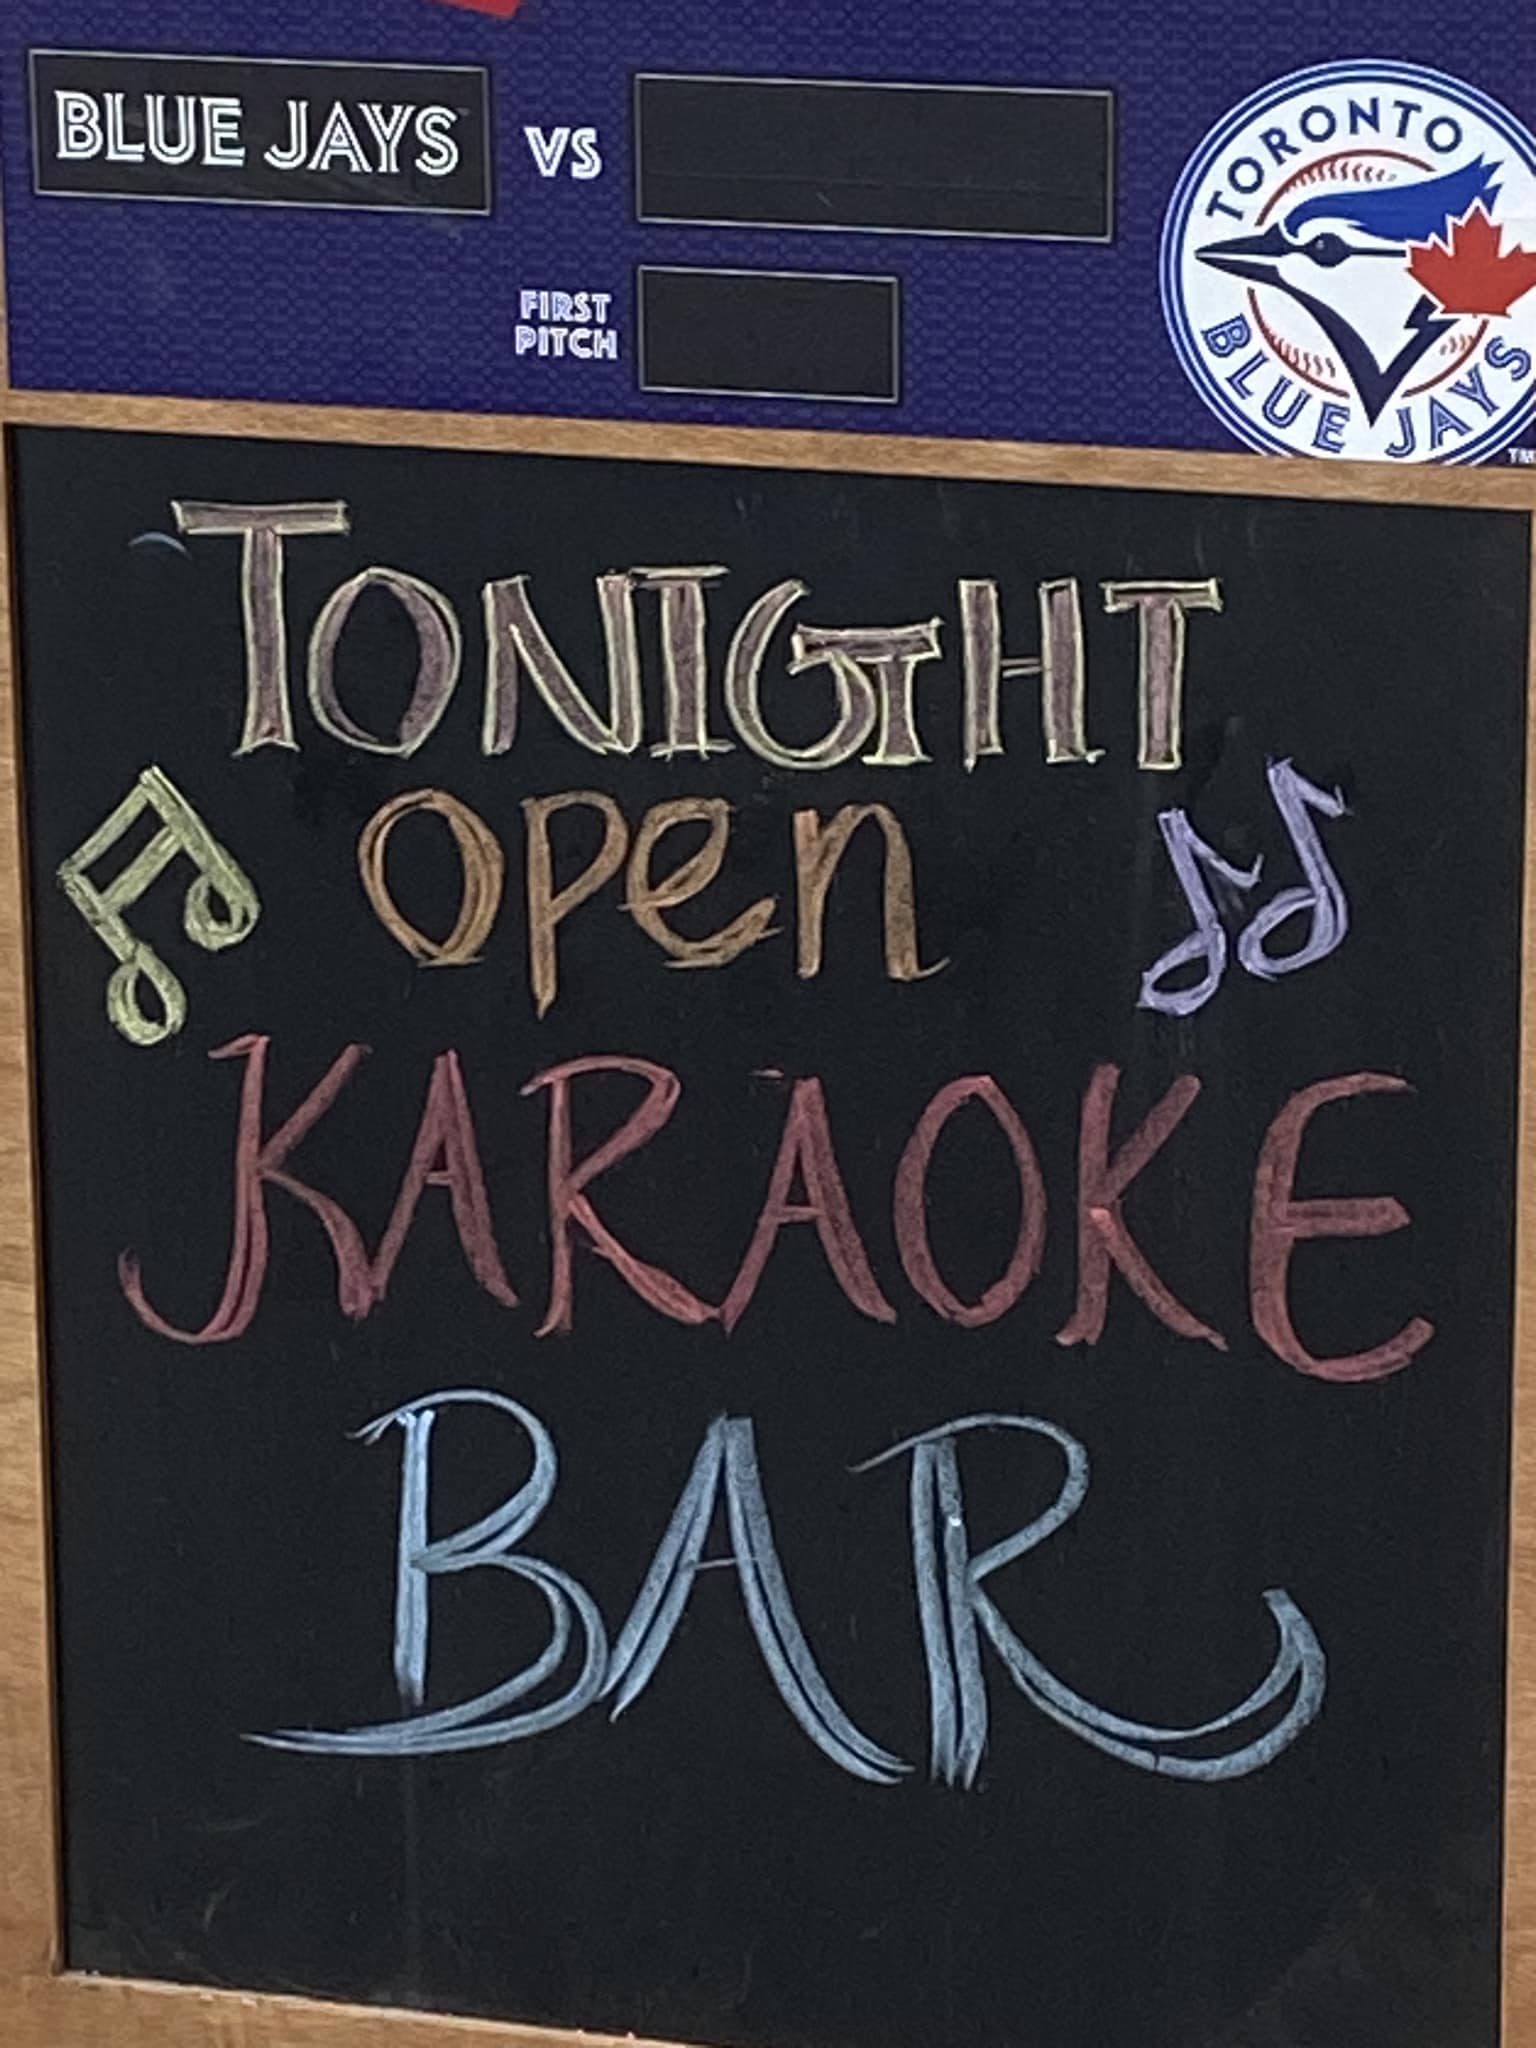 BLUE JAYS VS
FIRST
PITCH
TORONTO
BLUE JAYS
TM
TONIGHT
open
KARAOKE
BAR